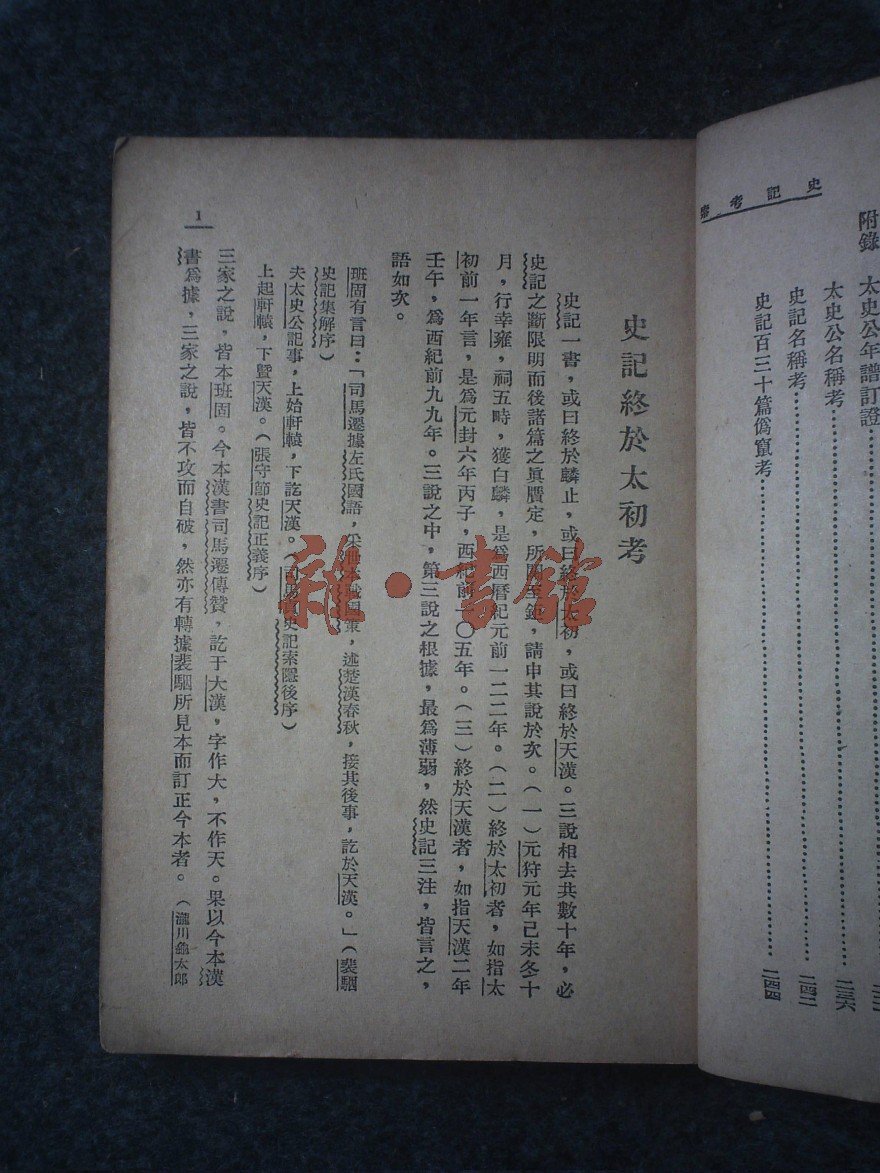 史記考索
附錄 太史公年譜訂證
太史公名稱考 二三六
史記名稱考 二四二
史記百三十篇僞竄考 二四四
史記終於太初考
史記一書，或曰終於麟止，或曰終於太初，或曰終於天漢。三說相去共數十年，必
史記之斷限明而後諸篇之眞贋定，所關至鉅，請申其說於次。(一)元狩元年己未冬十
月，行幸雍，祠五畤，獲白麟，是爲西曆紀元前一二二年。(二)終於太初者，如指太
初前一年言，是爲元封六年丙子，西紀前一〇五年。(三)終於天漢者，如指天漢二年
壬午，爲西紀前九九年。三說之中，第三說之根據，最爲薄弱，然史記三注，皆言之，
語如次。
班固有言曰：「司馬遷據左氏國語，采世本戰國策，述楚漢春秋，接其後事，訖於天漢。」(裴駰
史記集解序)
夫太史公記事，上始軒轅，下訖天漢。(司馬貞史記索隱後序)
上起軒轅，下曁天漢。(張守節史記正義序)
三家之說，皆本班固。今本漢書司馬遷傳贊，訖于大漢，字作大，不作天。果以今本漢
書爲據，三家之說，皆不攻而自破，然亦有轉據裴駰所見本而訂正今本者。(瀧川龜太郎
1
雜·書館